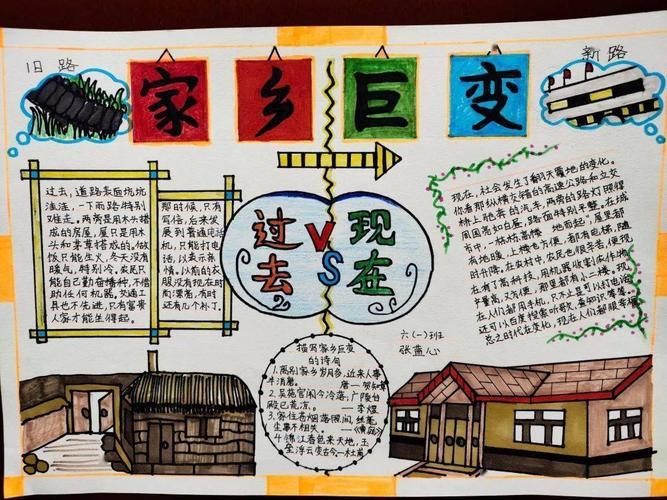 家乡巨变
旧路
新路
过去，道路表面坑坑
洼洼，一下雨路特别
难走。两旁是用木头搭
成的房屋，屋只是用木
头和茅草搭成的。做
饭只能生火，冬天没有
暖气，特别冷。农民只
能自己勤奋精神，不借
助任何机器。交通工
具也不先进，只有富贵
人家才能坐得起。
那时候，只有
写信，后来发
展到普通电话
机，只能打电
话，以表示亲
情。以前的衣
服没有现在时
尚漂亮，有时
还有几个补丁。
过去
VS
现在
现在，社会发生了翻天覆地的变化。
你看那纵横交错的高速公路和立交
桥上驰奔的汽车，两旁的路灯照得
夜里亮如白昼，路面特别平整。在城
市中，一栋栋高楼拔地而起，屋里都
有地暖，上楼也方便，都有电梯，随
时升降。在农村中，农民也很辛苦，但现
在有了高科技，用机器收割农作物，
产量高，又方便，那里都有小二楼。现
在人们都用手机，只不止是可以打电话，
还可以百度搜索、听歌、查知识等等。
总之时代在变化，现在人们都很幸福。
六(一)班
描写家乡巨变
的诗句
1.离别家乡岁月多，近来人事
半消磨。
唐—贺知章
2.吴苑宫闱今冷落，广陵台
殿已荒凉。
—李煜
4.锦江春色来天地，玉
垒浮云变古今—杜甫